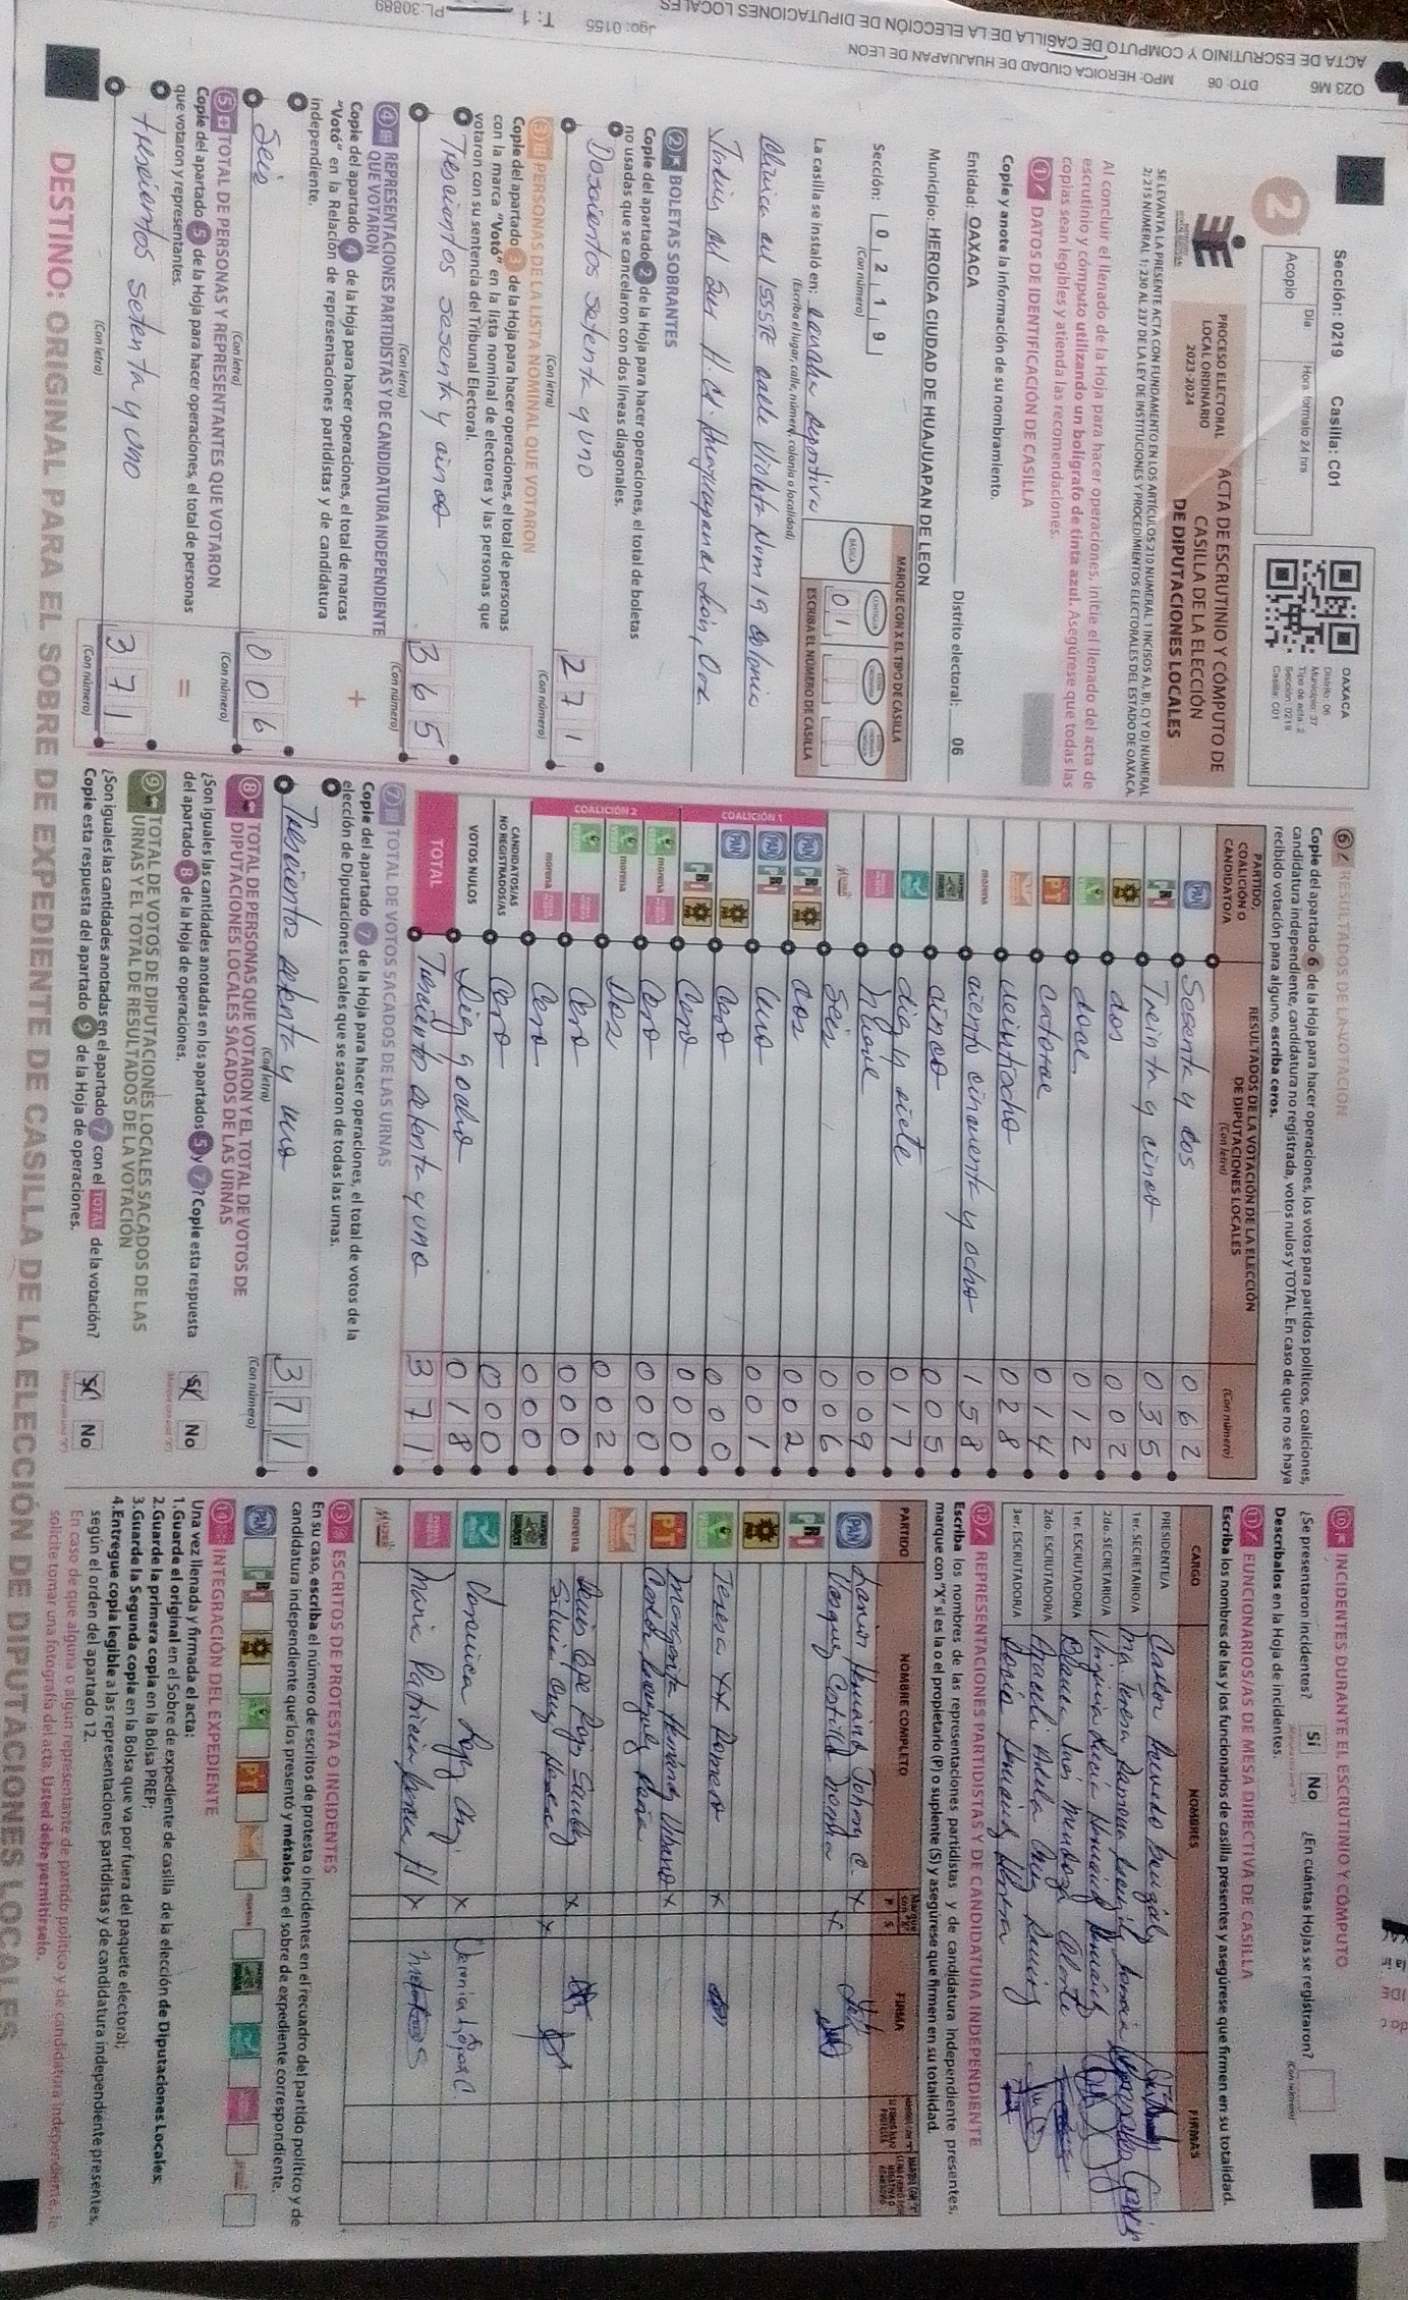 ACTA DE ESCRUTINIO Y CÓMPUTO DE CASILLA DE LA ELECCIÓN DE DIPUTACIONES LOCALES
O23 M6 DTO: 06 MPO: HEROICA CIUDAD DE HUAJUAPAN DE LEON
Jgo: 0155 T: 1 PL:30889
Sección: 0219 Casilla: C01
2
Acopio
Día:
Hora: formato 24 hrs
OAXACA
Distrito: 06
Municipio: 37
Tipo de acta: 2
Sección: 0219
Casilla: C01
PROCESO ELECTORAL
LOCAL ORDINARIO
2023-2024
ACTA DE ESCRUTINIO Y CÓMPUTO DE
CASILLA DE LA ELECCIÓN
DE DIPUTACIONES LOCALES
SE LEVANTA LA PRESENTE ACTA CON FUNDAMENTO EN LOS ARTÍCULOS 210 NUMERAL 1 INCISOS A), B), C) Y D) NUMERAL
2; 215 NUMERAL 1; 230 AL 237 DE LA LEY DE INSTITUCIONES Y PROCEDIMIENTOS ELECTORALES DEL ESTADO DE OAXACA.
Al concluir el llenado de la Hoja para hacer operaciones, inicie el llenado del acta de
escrutinio y cómputo utilizando un bolígrafo de tinta azul. Asegúrese que todas las
copias sean legibles y atienda las recomendaciones.
1 DATOS DE IDENTIFICACIÓN DE CASILLA
Copie y anote la información de su nombramiento.
Entidad: OAXACA Distrito electoral: 06
Municipio: HEROICA CIUDAD DE HUAJUAPAN DE LEON
Sección: 0 2 1 9
(Con número)
MARQUE CON X EL TIPO DE CASILLA
BÁSICA
0 1
ESCRIBA EL NÚMERO DE CASILLA
La casilla se instaló en: cancha deportiva
(Escriba el lugar, calle, número, colonia o localidad)
clinica del ISSSTE calle Violeta Num 19 colonia
Jardines del Sur H. Cd. Huajuapan de León, Oax
2 BOLETAS SOBRANTES
Copie del apartado 2 de la Hoja para hacer operaciones, el total de boletas
no usadas que se cancelaron con dos líneas diagonales.
Doscientos setenta y uno 2 7 1
(Con letra) (Con número)
3 PERSONAS DE LA LISTA NOMINAL QUE VOTARON
Copie del apartado 3 de la Hoja para hacer operaciones, el total de personas
con la marca "Votó" en la lista nominal de electores y las personas que
votaron con su sentencia del Tribunal Electoral.
Trescientos sesenta y cinco 3 6 5
(Con letra) (Con número)
4 REPRESENTACIONES PARTIDISTAS Y DE CANDIDATURA INDEPENDIENTE
QUE VOTARON
Copie del apartado 4 de la Hoja para hacer operaciones, el total de marcas
"Votó" en la Relación de representaciones partidistas y de candidatura
independiente.
+
Seis 0 0 6
(Con letra) (Con número)
5 TOTAL DE PERSONAS Y REPRESENTANTES QUE VOTARON
Copie del apartado 5 de la Hoja para hacer operaciones, el total de personas
que votaron y representantes.
=
trescientos setenta y uno 3 7 1
(Con letra) (Con número)
6 RESULTADOS DE LA VOTACIÓN
Copie del apartado 6 de la Hoja para hacer operaciones, los votos para partidos políticos, coaliciones,
candidatura independiente, candidatura no registrada, votos nulos y TOTAL. En caso de que no se haya
recibido votación para alguno, escriba ceros.
PARTIDO, COALICIÓN O CANDIDATO/A
RESULTADOS DE LA VOTACIÓN DE LA ELECCIÓN DE DIPUTACIONES LOCALES
(Con letra) (Con número)
PAN Sesenta y dos 0 6 2
PRI Treinta y cinco 0 3 5
dos 0 0 2
doce 0 1 2
PT catorce 0 1 4
veintiocho 0 2 8
morena ciento cincuenta y ocho 1 5 8
cinco 0 0 5
diez y siete 0 1 7
nueve 0 0 9
MUJER Seis 0 0 6
COALICIÓN 1
PAN PRI dos 0 0 2
PAN PRI Uno 0 0 1
PAN Cero 0 0 0
PRI Cero 0 0 0
COALICIÓN 2
morena Cero 0 0 0
morena Dos 0 0 2
Cero 0 0 0
morena Cero 0 0 0
CANDIDATOS/AS NO REGISTRADOS/AS Cero 0 0 0
VOTOS NULOS Diez y ocho 0 1 8
TOTAL Trescientos setenta y uno 3 7 1
7 TOTAL DE VOTOS SACADOS DE LAS URNAS
Copie del apartado 7 de la Hoja para hacer operaciones, el total de votos de la
elección de Diputaciones Locales que se sacaron de todas las urnas.
Trescientos setenta y uno 3 7 1
(Con letra) (Con número)
8 TOTAL DE PERSONAS QUE VOTARON Y EL TOTAL DE VOTOS DE
DIPUTACIONES LOCALES SACADOS DE LAS URNAS
¿Son iguales las cantidades anotadas en los apartados 5 y 7? Copie esta respuesta
del apartado 8 de la Hoja de operaciones.
Sí No
9 TOTAL DE VOTOS DE DIPUTACIONES LOCALES SACADOS DE LAS
URNAS Y EL TOTAL DE RESULTADOS DE LA VOTACIÓN
¿Son iguales las cantidades anotadas en el apartado 7 con el TOTAL de la votación?
Copie esta respuesta del apartado 9 de la Hoja de operaciones.
Sí No
10 INCIDENTES DURANTE EL ESCRUTINIO Y CÓMPUTO
¿Se presentaron incidentes? Sí No ¿En cuántas Hojas se registraron?
(Con número)
Descríbalos en la Hoja de incidentes.
11 FUNCIONARIOS/AS DE MESA DIRECTIVA DE CASILLA
Escriba los nombres de las y los funcionarios de casilla presentes y asegúrese que firmen en su totalidad.
CARGO NOMBRES FIRMAS
PRESIDENTE/A Carlos
1er. SECRETARIO/A Ma Teresa
2do. SECRETARIO/A Virginia
1er. ESCRUTADOR/A Ines Mendoza
2do. ESCRUTADOR/A Araceli Adela Cruz Ramirez
3er. ESCRUTADOR/A Sonia
12 REPRESENTACIONES PARTIDISTAS Y DE CANDIDATURA INDEPENDIENTE
Escriba los nombres de las representaciones partidistas y de candidatura independiente presentes,
marque con "X" si es la o el propietario (P) o suplente (S) y asegúrese que firmen en su totalidad.
PARTIDO NOMBRE COMPLETO P S FIRMA
PAN Johny C. X
Vasquez X
PRI
Teresa Romero X
PT Margarita X
morena Luis Reyes Sanchez X
Silvia Cruz X
Veronica Lopez Cruz X Veronica Lopez C
Maria Patricia X
MUJER
13 ESCRITOS DE PROTESTA O INCIDENTES
En su caso, escriba el número de escritos de protesta o incidentes en el recuadro del partido político y de
candidatura independiente que los presentó y métalos en el sobre de expediente correspondiente.
PAN PRI PT morena
14 INTEGRACIÓN DEL EXPEDIENTE
Una vez llenada y firmada el acta:
1.Guarde el original en el Sobre de expediente de casilla de la elección de Diputaciones Locales;
2.Guarde la primera copia en la Bolsa PREP;
3.Guarde la Segunda copia en la Bolsa que va por fuera del paquete electoral;
4.Entregue copia legible a las representaciones partidistas y de candidatura independiente presentes,
según el orden del apartado 12.
En caso de que alguna o algún representante de partido político y de candidatura independiente, le
solicite tomar una fotografía del acta. Usted debe permitírselo.
DESTINO: ORIGINAL PARA EL SOBRE DE EXPEDIENTE DE CASILLA DE LA ELECCIÓN DE DIPUTACIONES LOCALES